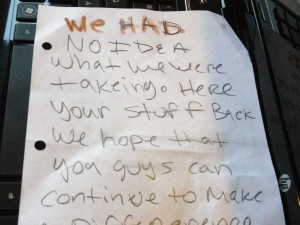 We HAD
NO IDEA
what we were
takeing. Here
Your stuff Back
We hope that
you guys can
continue to Make
a Difference
hp